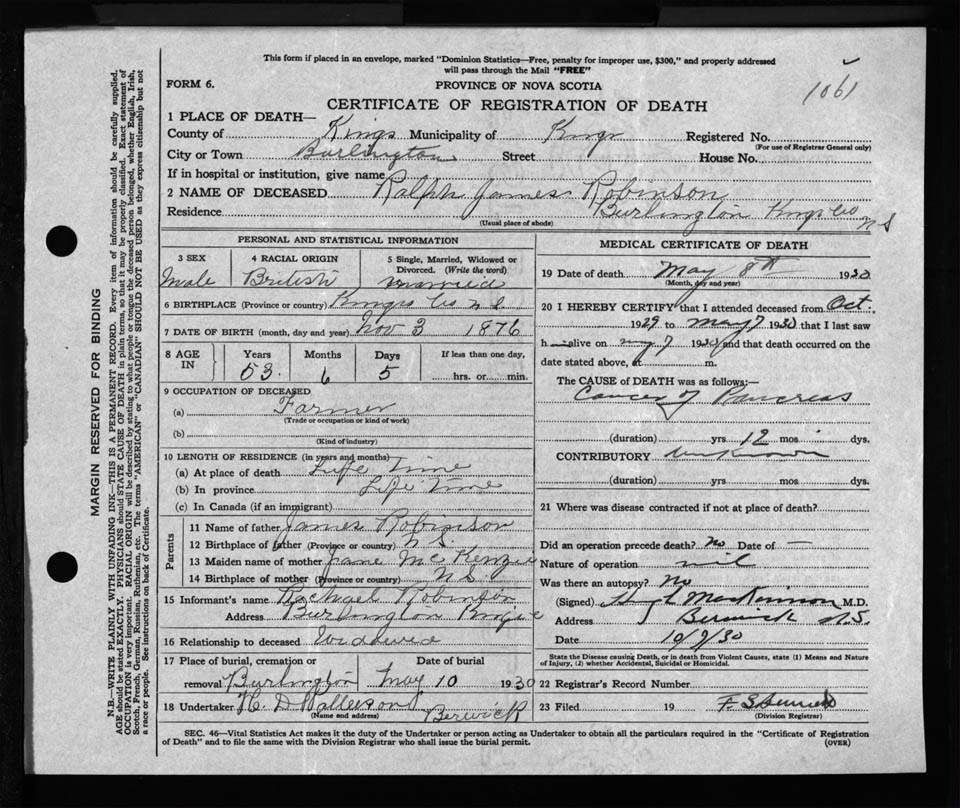 This form if placed in an envelope, marked "Dominion Statistics—Free, penalty for improper use, $300," and properly addressed
will pass through the Mail "FREE"
1061
FORM 6. PROVINCE OF NOVA SCOTIA
CERTIFICATE OF REGISTRATION OF DEATH
1 PLACE OF DEATH—
County of Kings Municipality of Kings Registered No.
(For use of Registrar General only)
City or Town Burlington Street House No.
If in hospital or institution, give name
2 NAME OF DECEASED Ralph James Robinson
Residence Burlington Kings Co NS
(Usual place of abode)
PERSONAL AND STATISTICAL INFORMATION
3 SEX 4 RACIAL ORIGIN 5 Single, Married, Widowed or
Divorced. (Write the word)
Male British married
6 BIRTHPLACE (Province or country) Kings Co N S
7 DATE OF BIRTH (month, day and year) Nov 3 1876
8 AGE IN Years Months Days If less than one day,
53 6 5 hrs. or min.
9 OCCUPATION OF DECEASED
(a) Farmer
(Trade or occupation or kind of work)
(b)
(Kind of industry)
10 LENGTH OF RESIDENCE (in years and months)
(a) At place of death Life Time
(b) In province Life Time
(c) In Canada (if an immigrant)
Parents
11 Name of father James Robinson
12 Birthplace of father (Province or country) N S.
13 Maiden name of mother Jane McKenzie
14 Birthplace of mother (Province or country) N S.
15 Informant's name Rachael Robinson
Address Burlington Kings
16 Relationship to deceased
17 Place of burial, cremation or Date of burial
removal Burlington May 10 1930
18 Undertaker H. D Berwick
(Name and address)
MEDICAL CERTIFICATE OF DEATH
19 Date of death May 8th 1930
(Month, day and year)
20 I HEREBY CERTIFY that I attended deceased from Oct.
1929 to May 7 1930 that I last saw
h alive on May 7 1930 and that death occurred on the
date stated above, at m.
The CAUSE OF DEATH was as follows:—
Cancer of Pancreas
(duration) yrs 12 mos dys.
CONTRIBUTORY unknown
(duration) yrs mos dys.
21 Where was disease contracted if not at place of death?
Did an operation precede death? No Date of —
Nature of operation nil
Was there an autopsy? No
(Signed) Hugh MacKinnon M.D.
Address Berwick N.S.
Date
State the Disease causing Death, or in death from Violent Causes, state (1) Means and Nature
of Injury, (2) whether Accidental, Suicidal or Homicidal.
22 Registrar's Record Number
23 Filed 19
(Division Registrar)
SEC. 46—Vital Statistics Act makes it the duty of the Undertaker or person acting as Undertaker to obtain all the particulars required in the "Certificate of Registration
of Death" and to file the same with the Division Registrar who shall issue the burial permit. (OVER)
MARGIN RESERVED FOR BINDING
N.B.—WRITE PLAINLY WITH UNFADING INK—THIS IS A PERMANENT RECORD. Every item of information should be carefully supplied.
AGE should be stated EXACTLY. PHYSICIANS should STATE CAUSE OF DEATH in plain terms, so that it may be properly classified. Exact statement of
OCCUPATION is very important. RACIAL ORIGIN will be described by stating to what people or tongue the deceased person belonged, whether English, Irish,
Scotch, French, German, Russian, Ruthenian, etc. The terms "AMERICAN" or "CANADIAN" SHOULD NOT BE USED as they express citizenship but not
a race or people. See instructions on back of Certificate.